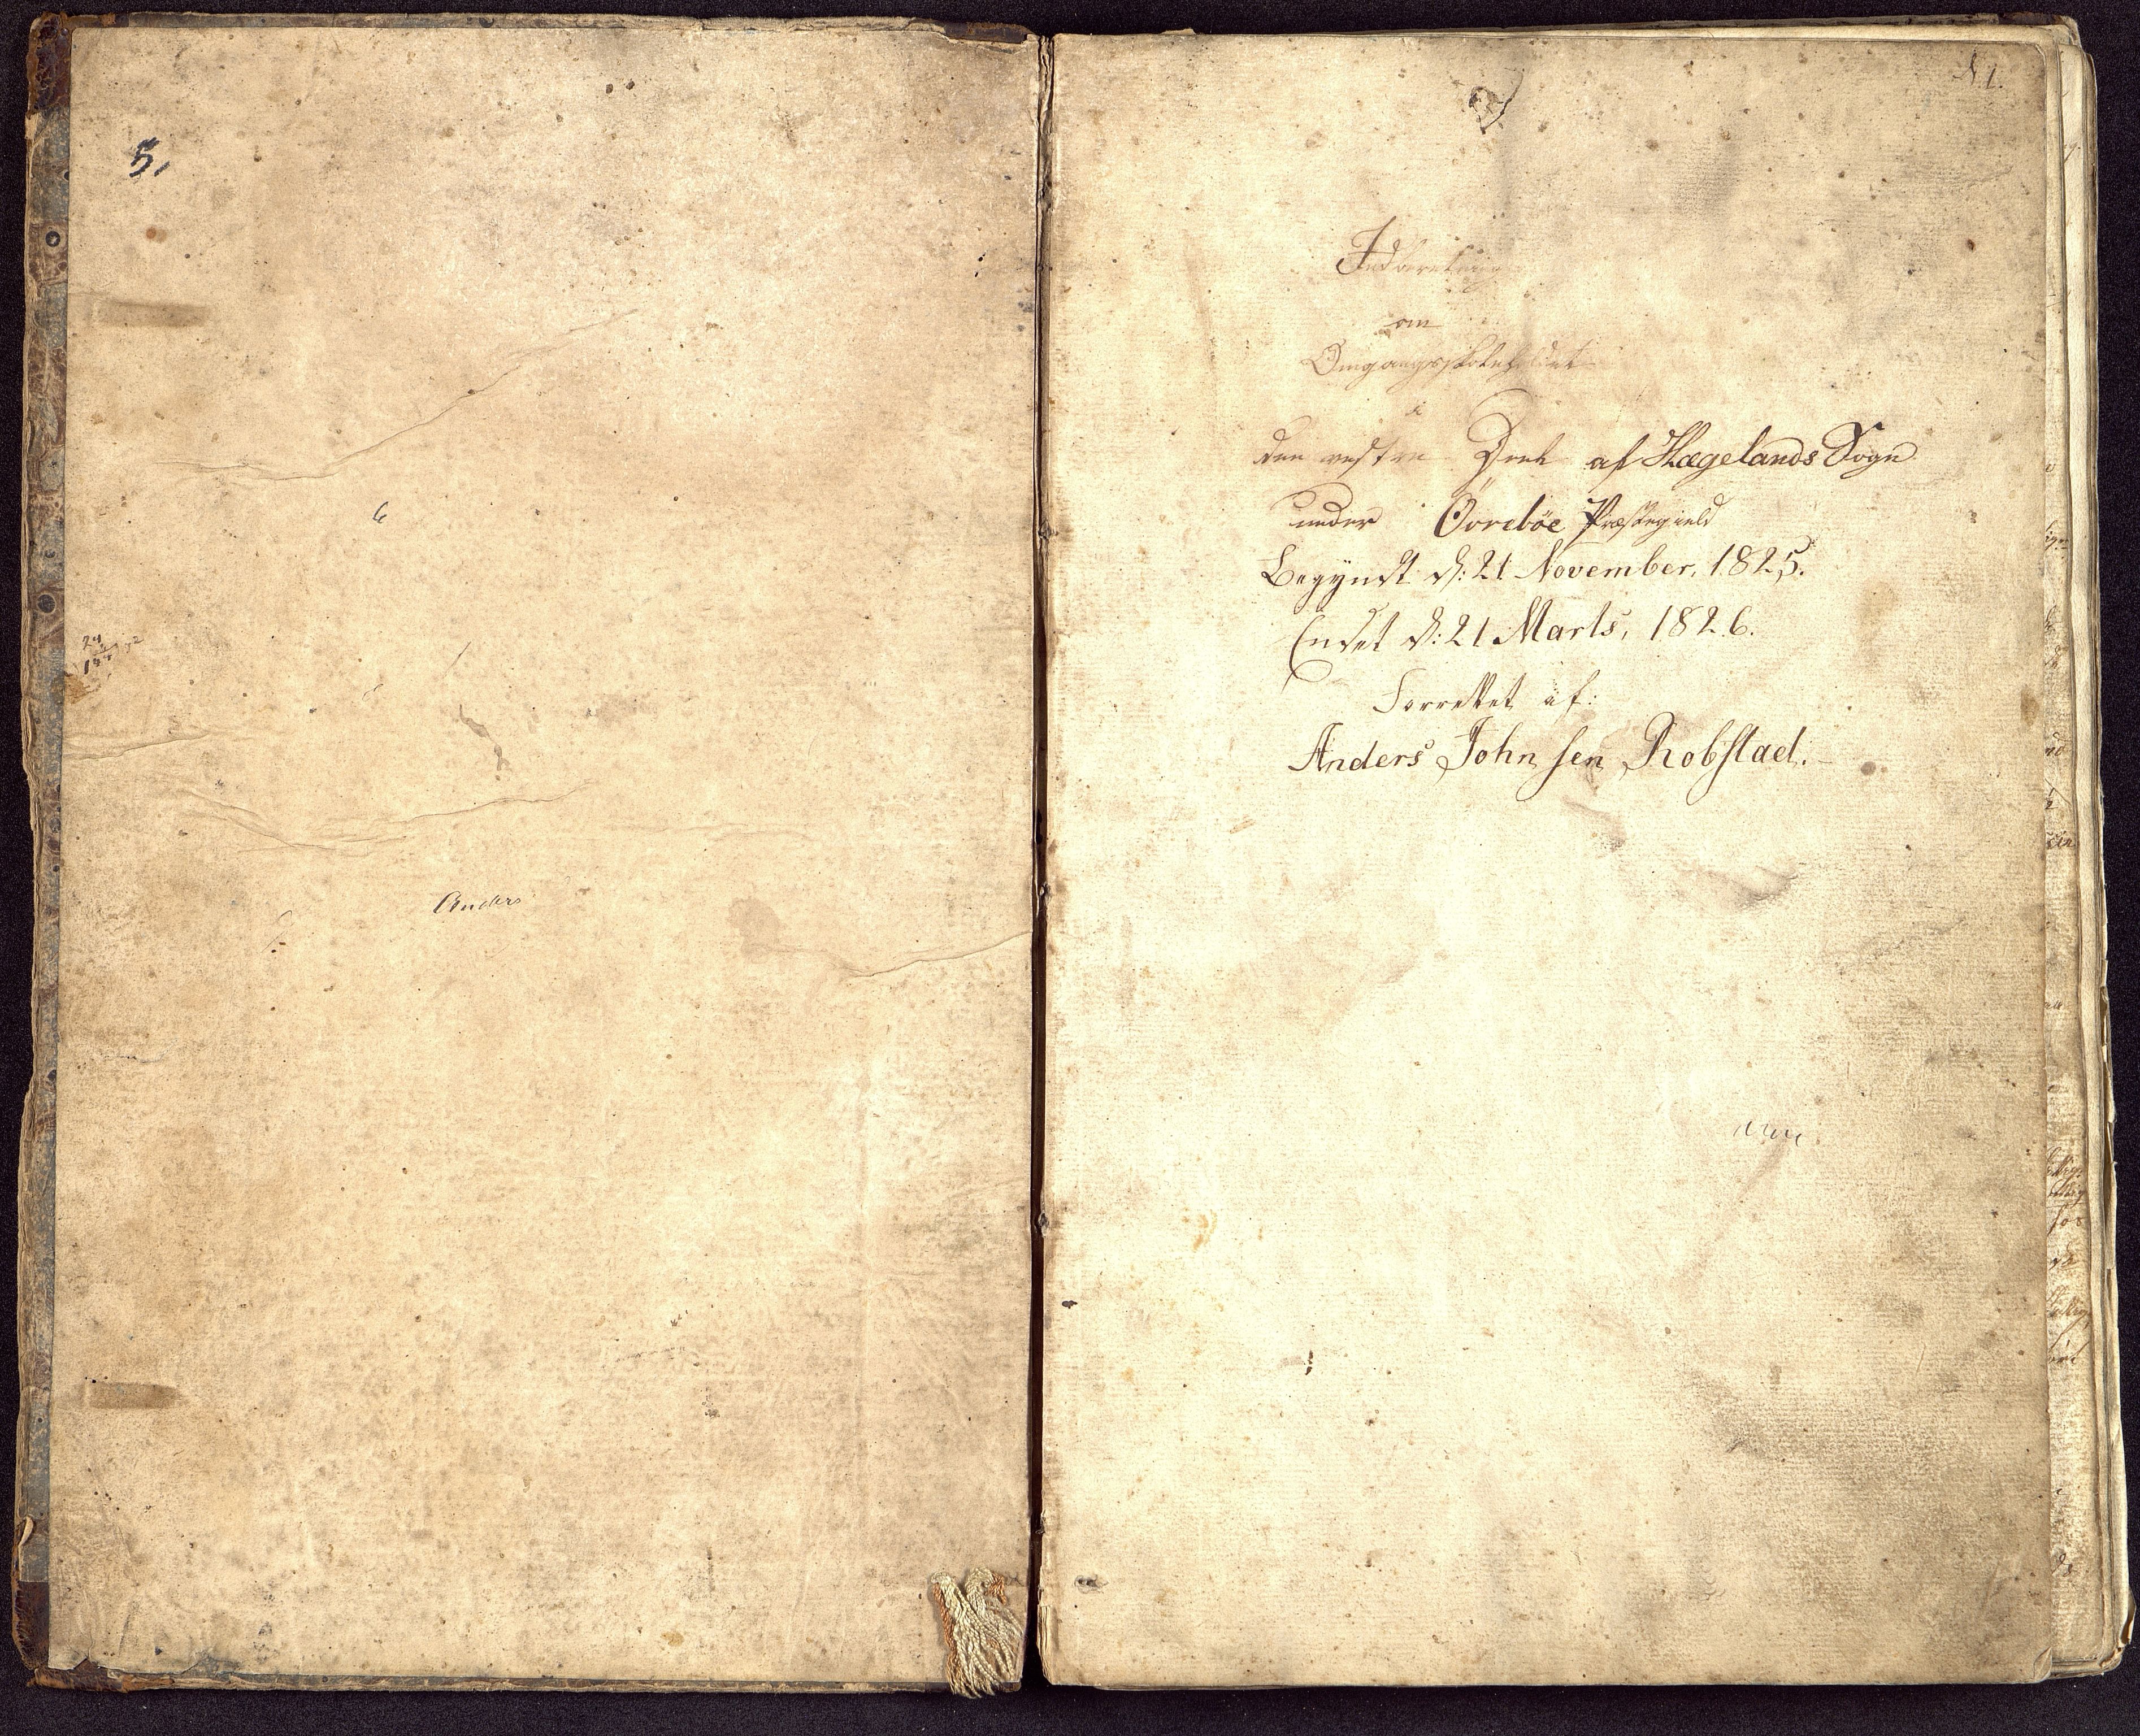 5.
6
24
Anders
N 1.
Indberetning
om
Omgangsskoleholdet
i
den vestre Deel af Hægelands Sogn
under Övreböe Præstegield
Begyndt d: 21 November, 1825.
Endet d: 21 Marts, 1826.
Forrettet af:
Anders Johnsen Robstad.